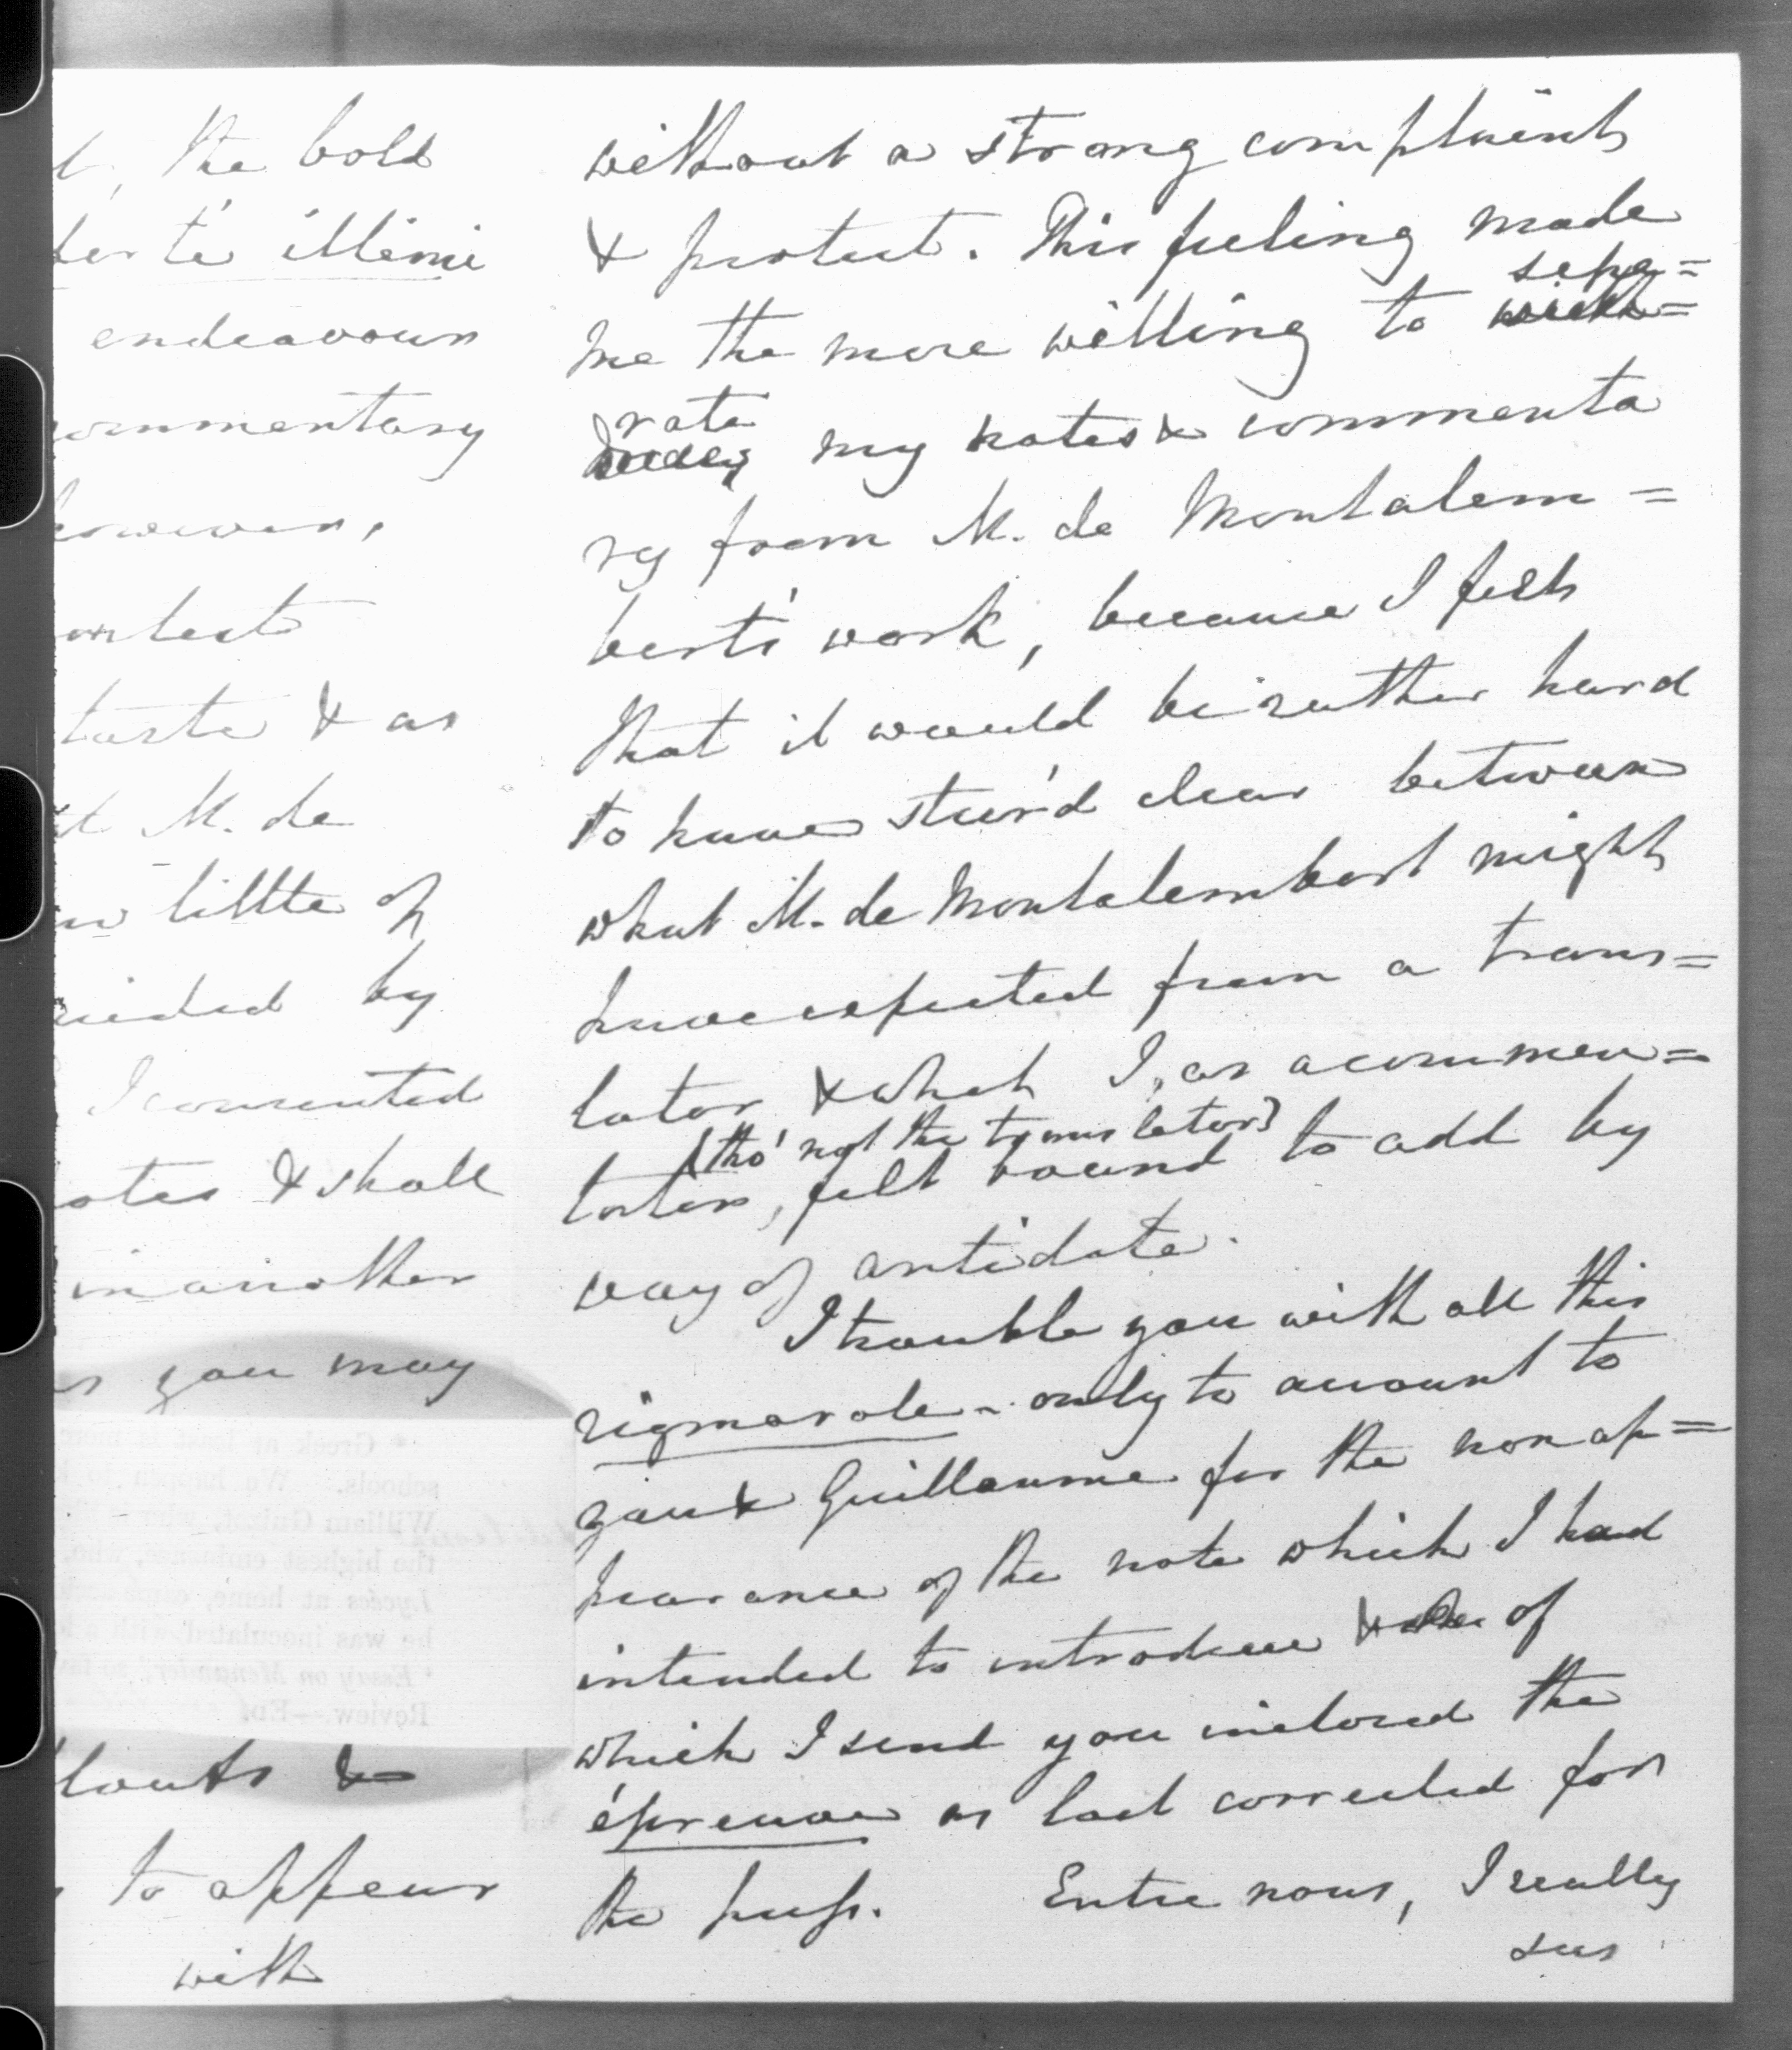 , the bold
té illimi
endeavours
commentary
however,
contest
taste & as
M. de
little of
by
I consented
notes & shall
in another
you may
* Greek at least is more
schools. We happen to k
William Guizot, who
the highest eminence, who,
lycées at home,
he was inoculated with a
'Essay on Menander,'
Review.—Ed.
&
to appear
with
without a strong complaint
& protest. This feeling made
me the more willing to sepa=
rate my notes & commenta
ry from M. de Montalem=
bert's work, because I felt
that it would be rather hard
to have steer'd clear between
what M. de Montalembert might
have expected from a trans=
lator & what I, as a commen=
(tho' not the translator)
tator, felt bound to add by
way of antidote.
I trouble you with all this
rigmarole - only to account to
you & Guillaume for the non ap=
pearance of the note which I had
intended to introduce & of
which I send you inclosed the
épreuve as last corrected for
the press. Entre nous, I really
sus